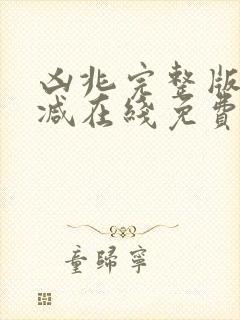 凶兆完整版
减在线免費
童歸寧